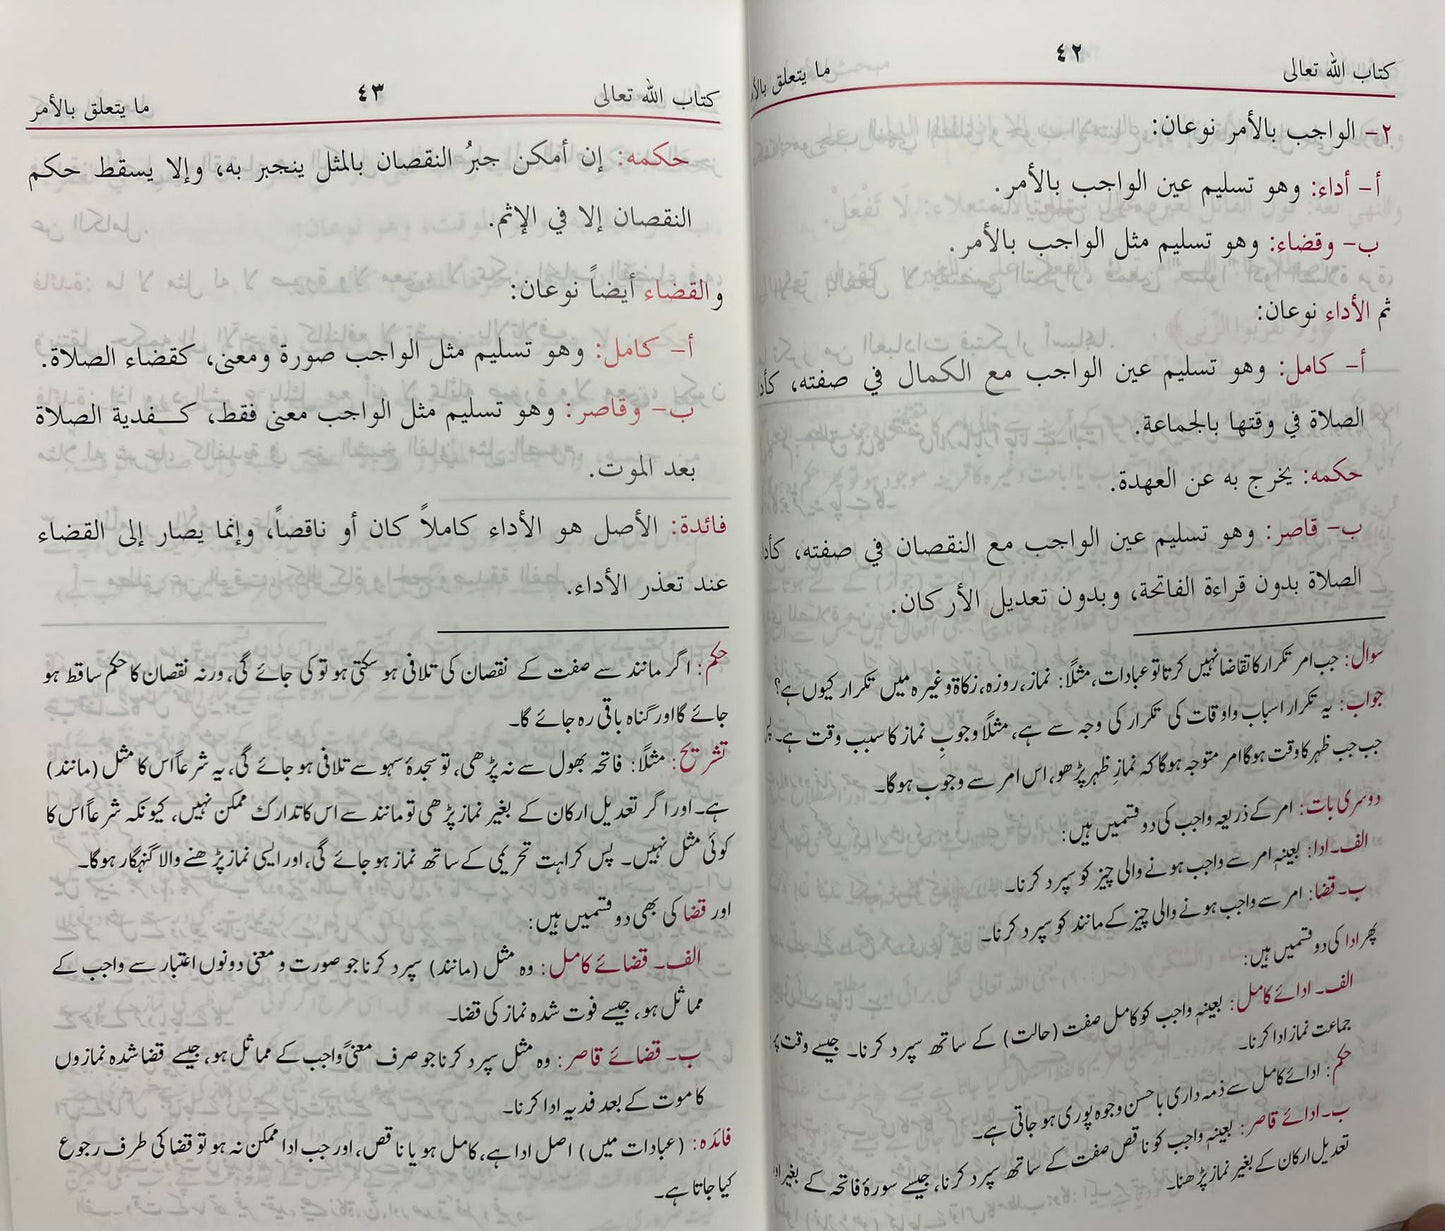 كتاب الله تعالى ٤٢ ما يتعلق بالأمر
٢- الواجب بالأمر نوعان:
أ- أداء: وهو تسليم عين الواجب بالأمر.
ب- وقضاء: وهو تسليم مثل الواجب بالأمر.
ثم الأداء نوعان:
أ- كامل: وهو تسليم عين الواجب مع الكمال في صفته، كأداء
الصلاة في وقتها بالجماعة.
حكمه: يخرج به عن العهدة.
ب- قاصر: وهو تسليم عين الواجب مع النقصان في صفته، كأداء
الصلاة بدون قراءة الفاتحة، وبدون تعديل الأركان.
سوال: جب امر تکرار کا تقاضا نہیں کرتا تو عبادات، مثلًا: نماز، روزہ، زکاۃ وغیرہ میں تکرار کیوں ہے؟
جواب: یہ تکرار اسباب واوقات کی تکرار کی وجہ سے ہے، مثلًا وجوبِ نماز کا سبب وقت ہے۔ پس
جب جب ظہر کا وقت ہوگا امر متوجہ ہوگا کہ نمازِ ظہر پڑھو، اس امر سے وجوب ہوگا۔
دوسری بات: امر کے ذریعہ واجب کی دو قسمیں ہیں:
الف۔ ادا: بعینہٖ امر سے واجب ہونے والی چیز کو سپرد کرنا۔
ب۔ قضا: امر سے واجب ہونے والی چیز کے مانند کو سپرد کرنا۔
پھر ادا کی دو قسمیں ہیں:
الف۔ ادائے کامل: بعینہٖ واجب کو کامل صفت (حالت) کے ساتھ سپرد کرنا۔ جیسے وقت پر
جماعت نماز ادا کرنا۔
حکم: ادائے کامل سے ذمہ داری باحسن وجوہ پوری ہو جاتی ہے۔
ب۔ ادائے قاصر: بعینہٖ واجب کو ناقص صفت کے ساتھ سپرد کرنا، جیسے سورۂ فاتحہ کے بغیر اور
تعدیل ارکان کے بغیر نماز پڑھنا۔
كتاب الله تعالى ٤٣ ما يتعلق بالأمر
حكمه: إن أمكن جبرُ النقصان بالمثل ينجبر به، وإلا يسقط حكم
النقصان إلا في الإثم.
والقضاء أيضاً نوعان:
أ- كامل: وهو تسليم مثل الواجب صورة ومعنى، كقضاء الصلاة.
ب- وقاصر: وهو تسليم مثل الواجب معنى فقط، كـفدية الصلاة
بعد الموت.
فائدة: الأصل هو الأداء كاملاً كان أو ناقصاً، وإنما يصار إلى القضاء
عند تعذر الأداء.
حکم: اگر مانند سے صفت کے نقصان کی تلافی ہو سکتی ہو تو کی جائے گی، ورنہ نقصان کا حکم ساقط ہو
جائے گا اور گناہ باقی رہ جائے گا۔
تشریح: مثلًا: فاتحہ بھول سے نہ پڑھی، تو سجدۂ سہو سے تلافی ہو جائے گی، یہ شرعاً اس کا مثل (مانند)
ہے۔ اور اگر تعدیل ارکان کے بغیر نماز پڑھی تو مانند سے اس کا تدارک ممکن نہیں، کیونکہ شرعاً اس کا
کوئی مثل نہیں۔ پس کراہت تحریمی کے ساتھ نماز ہو جائے گی، اور ایسی نماز پڑھنے والا گنہگار ہوگا۔
اور قضا کی بھی دو قسمیں ہیں:
الف۔ قضائے کامل: وہ مثل (مانند) سپرد کرنا جو صورت و معنی دونوں اعتبار سے واجب کے
مماثل ہو، جیسے فوت شدہ نماز کی قضا۔
ب۔ قضائے قاصر: وہ مثل سپرد کرنا جو صرف معنیً واجب کے مماثل ہو، جیسے قضا شدہ نمازوں
کا موت کے بعد فدیہ ادا کرنا۔
فائدہ: (عبادات میں) اصل ادا ہے، کامل ہو یا ناقص، اور جب ادا ممکن نہ ہو تو قضا کی طرف رجوع
کیا جاتا ہے۔